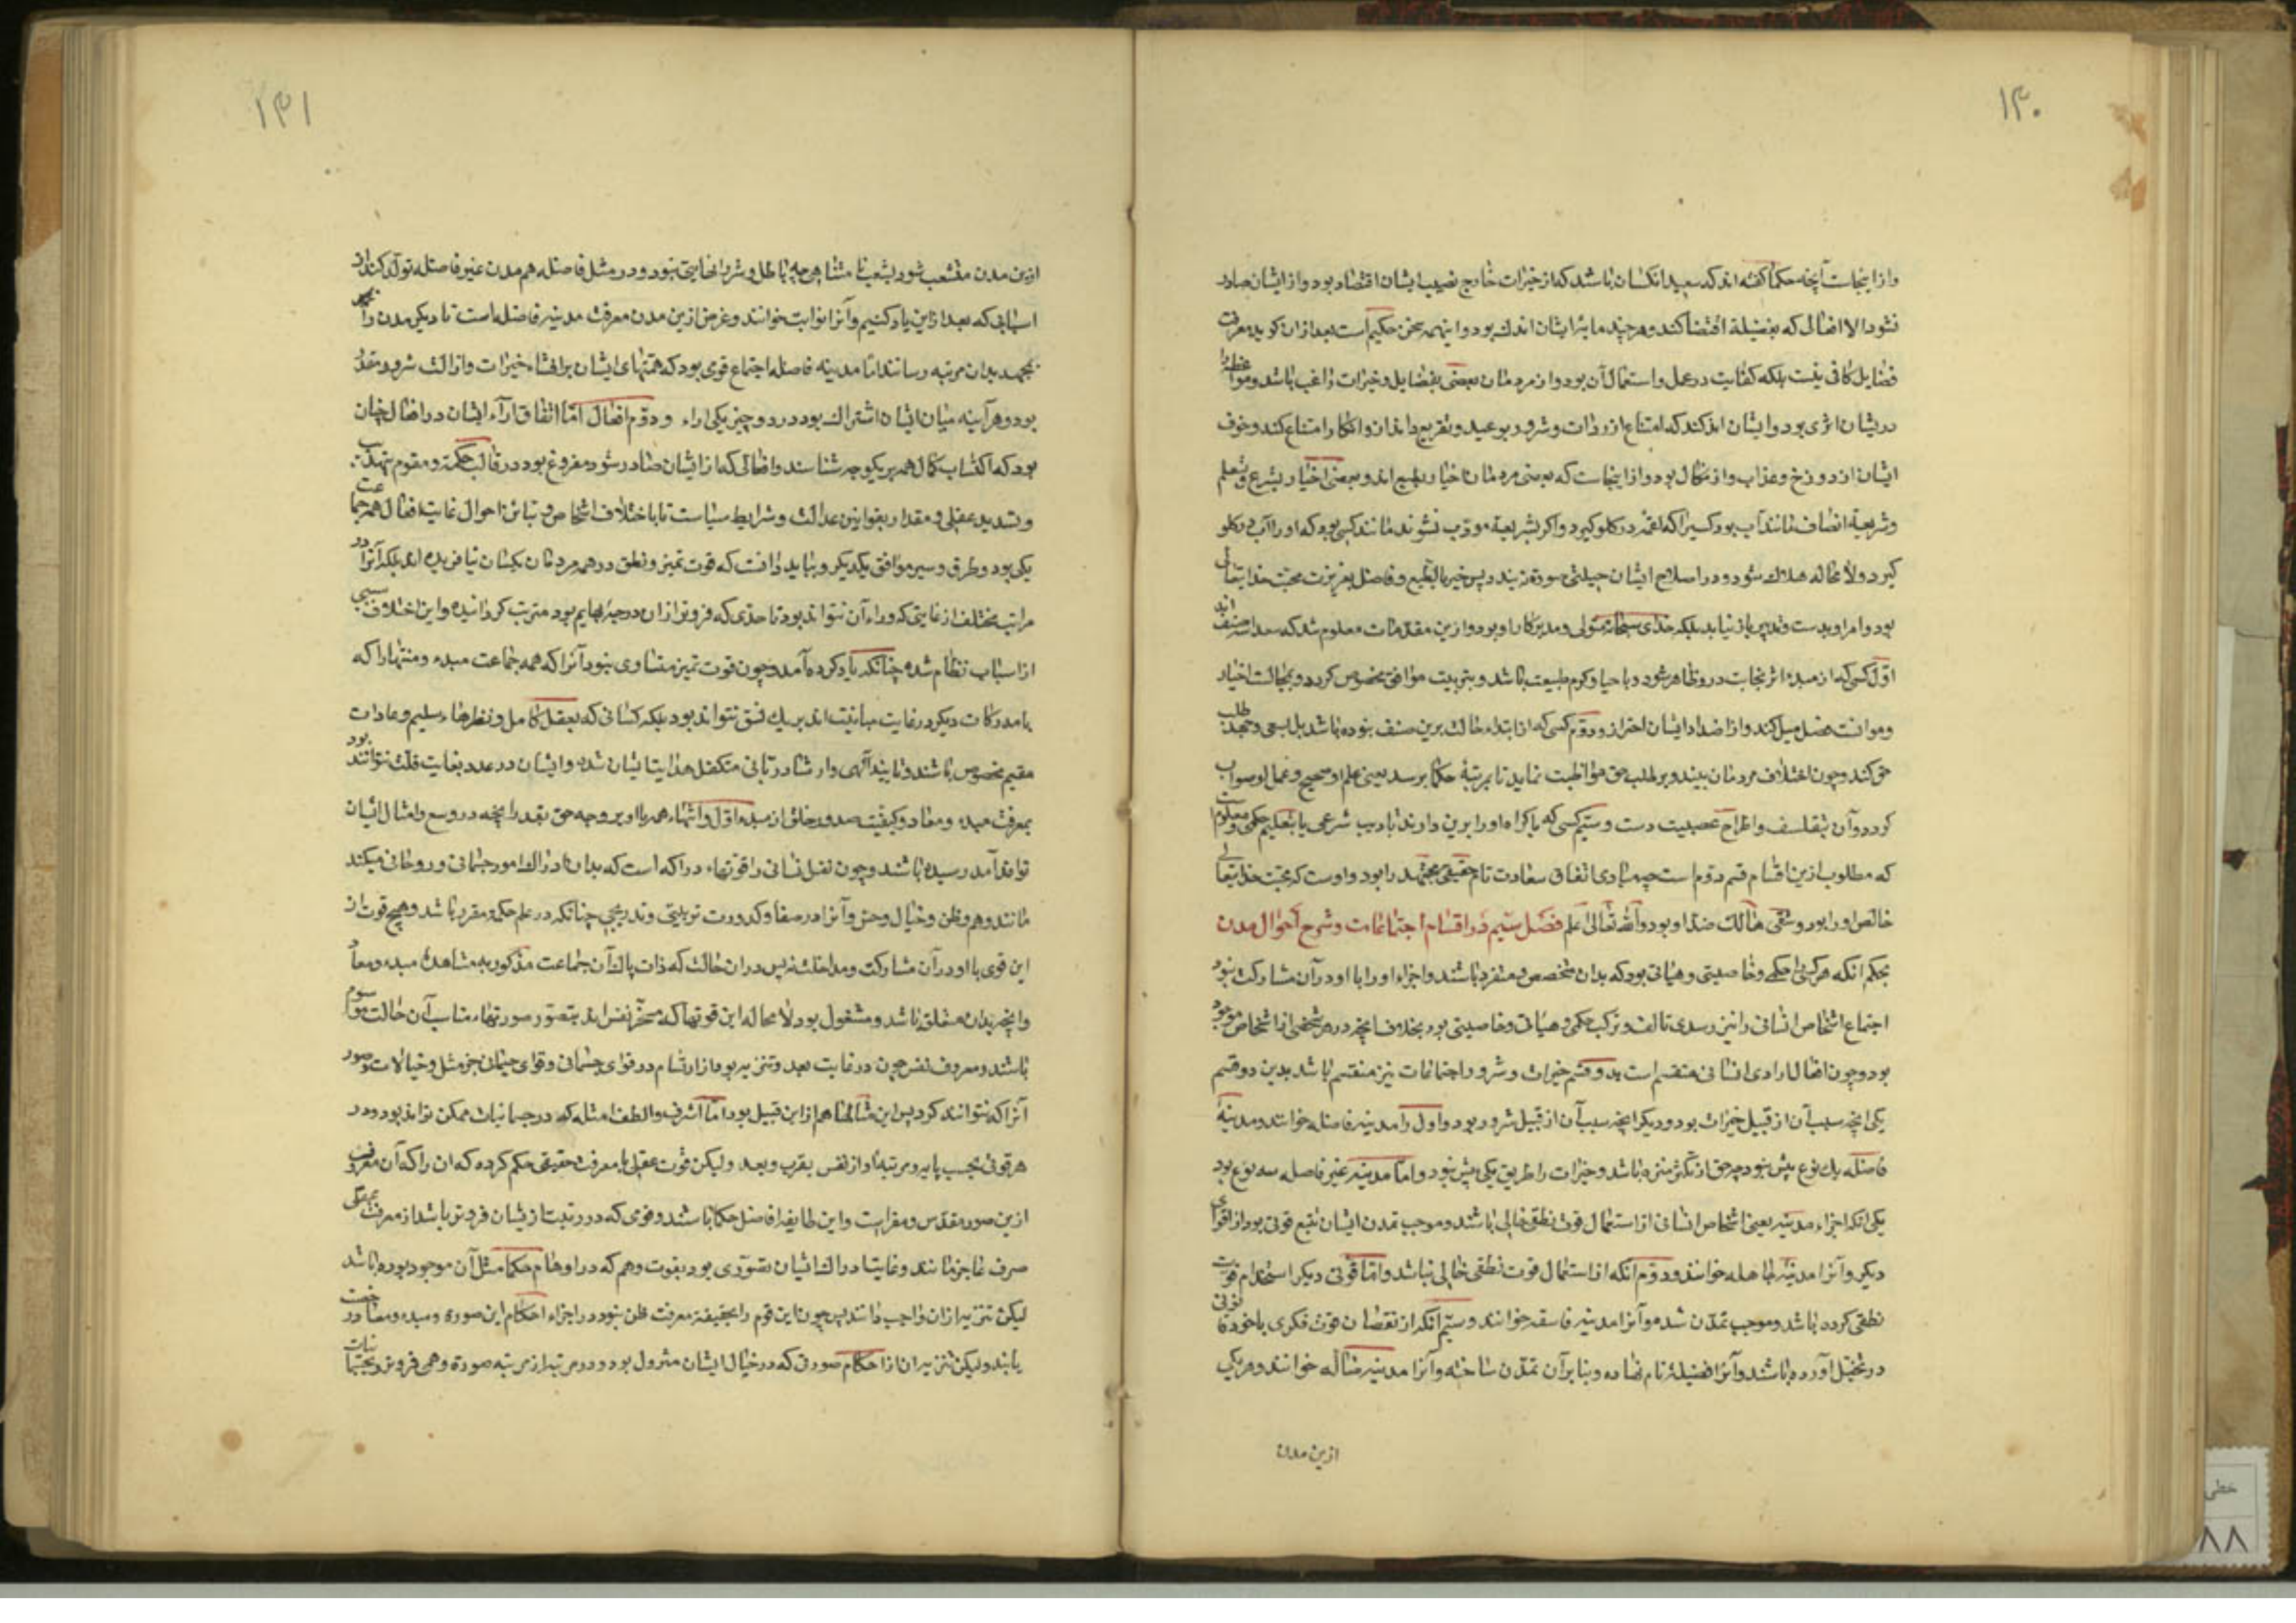 ۱۴۰
وازاینجاست آنچه حکما گفته‌اند که سعید آنکسان باشد که از خیرات خارج نصیب ایشان اقتصاد بود و از ایشان صادر
نشود الا افعالی که بفضیلة اقتضا کند و هرچند مایهٔ ایشان اندک بود و اینهمه سخن حکیم است بعد ازان گوید معرفت
فضایل کافی نیست بلکه کفایت در عمل و استعمال آن بود و از مردمان بعضی بفضایل و خیرات راغب باشند و مواعظ را
دریشان اثری بود و ایشان اند کند که امتناع از رذات و شرور بوعید و تقریع و انذار و انکار امتناع کنند و خوف
ایشان از دوزخ و عذاب و از نکال بود و ازاینجاست که بعضی مردمان اخیار بطبع‌اند و بعضی اخیار بشرع و تعلم
و شریعة انصاف مانند آب بود کسیرا که لقمه در کلو کیرد و اکر بشریعة مودب نشوند مانند کسی بود که او را آب در کلو
کیرد و لا محاله هلاک شود و در اصلاح ایشان حیلتی صورة نبندد پس خیر بالطبع و فاضل بغریزت محبت خدایتعالی
بود و امر او بدست و تدبیر ما برنیاید بلکه خدای سبحانه متولی و مدبر کار او بود و ازین مقدمات معلوم شد که سعدا سه صنف اند
اول کسی که از مبدء اثر نجابت درو ظاهر شود و با حیا و کرم طبیعت باشد و بتربیت موافق مخصوص کردد و بمجالست اخیار
و موانست فضل میل کند و از اضداد ایشان احتراز و دوم کسی که از ابتداء حالت برین صنف نبوده باشد بل بسعی و جهد طلب
حق کند و چون اختلاف مردمان بیند و بر طلب حق مواظبت نماید تا بمرتبهٔ حکما برسد یعنی علم او صحیح و عمل او صواب
کردد و آن بتفلسف و اطراح عصبیت دست و سیّم کسی که باکراه او را برین دارند بتادیب شرعی یا بتعلیم حکمی و معلوم
که مطلوب ازین اقسام قسم دوم است چه مبادی اتفاق سعادت تام حقیقی مجتهد را بود و اوست که محبت خدایتعالی
خالص او را بود و شقی هالک ضد او بود والله تعالی اعلم فصل سیّم در اقسام اجتماعات و شرح احوال مدن
بحکم انکه هر مرکبی را حکمی و خاصیتی و هیاتی بود که بدان متخصص و منفرد باشند و اجزاء او را با او در آن مشارکت نبود
اجتماع اشخاص انسانی را نیز از روی تالف و ترکب حکمی و هیاتی و خاصیتی بود بخلاف آنچه در هر شخصی از اشخاص موجود
بود و چون افعال ارادی انسانی منقسم است بدو قسم خیرات و شرور اجتماعات نیز منقسم باشد بدین دو قسم
یکی انچه سبب آن از قبیل خیرات بود و دیکر انچه سبب آن از قبیل شرور بود و اول را مدینه فاضله خوانند و مدینهٔ
فاضله یک نوع بیش نبود چه حق از تکثر منزه باشد و خیرات را طریق یکی بیش نبود و اما مدینه غیر فاضله سه نوع بود
یکی آنکه اجزاء مدینه یعنی اشخاص انسانی از استعمال قوت نطقی خالی باشند و موجب تمدن ایشان تتبع قوتی بود از قوای
دیکر و آنرا مدینهٔ جاهله خوانند و دوم آنکه از استعمال قوت نطقی خالی نباشد و اما قوتی دیکر استخدام قوت
نطقی کرده باشد و موجب تمدن شده و آنرا مدینه فاسقه خوانند و سیّم آنکه از نقصان قوت فکری با خود قانونی
در تخیل آورده باشند و آنرا فضیلة نام نهاده و بنا بر آن تمدن ساخته و آنرا مدینه ضاله خوانند و هر یکی
ازین مدن
۱۴۱
ازین مدن منشعب شود بشعب نا متناهی چه باطل و شر را نهایتی نبود و در مثل فاضله هم مدن غیر فاضله تولد کند از
اسبابی که بعد ازین یاد کنیم و آنرا نوابت خوانند و غرض ازین مدن معرفت مدینه فاضله است تا دیکر مدن را
بجهد بدان مرتبه رسانند اما مدینه فاضله اجتماع قومی بود که همتهای ایشان بر اقتناء خیرات و ازالت شرور مقدر
بود و هرآینه میان ایشان اشتراک بود در دو چیز یکی اراء و دوم افعال اما اتفاق آراء ایشان در افعال چنان
بود که اکتساب کمال همه بر یکوجه شناسند و افعالی که از ایشان صادر شود مفروغ بود در قالب حکمة و مقوم بتهذیب
و تسدید عقلی و مقدار بقوانین عدالت و شرایط سیاست تا با اختلاف اشخاص و تباین احوال غایت افعال همه جماعت
یکی بود و طرق و سیر موافق یکدیکر و بباید دانست که قوت تمیز و نطق در همه مردمان یکسان نیافریده اند بلکه آنرا در
مراتب مختلف از غایتی که وراء آن نتواند بود تا حدی که فروتر از ان درجهٔ بهایم بود مترتب کردانیده و این اختلاف سببی
از اسباب نظام شده چنانکه یاد کرده آمد و چون قوت تمیز متساوی نبود آنرا که همه جماعت مبدء و منتها را که
با مدرکات دیکر در غایت مباینت‌اند بر یک نسق نتواند بود بلکه کسانی که بعقل کامل و نظرهاء سلیم و عادات
مقیم مخصوص باشند و تایید آلهی و ارشاد ربانی متکفل هدایتایشان شده و ایشان در عدد بغایت قلت توانند بود
بمعرفت مبدء و معاد و کیفیت صدور خلق از مبدء اول و انتهاء همه با او بر وجه حق بقدر انچه در وسع و امثال ایشان
تواند آمد رسیده باشند و چون نفس انسانی را قوتهاء دراکه است که بدان ادراک امور جسمانی و روحانی میکند
مانند وهم و ظن و خیال و حس و آنرا در صفا و کدورت ترتیبی و تدریجی چنانکه در علم حکمة مقرر باشد و هیچ قوت از
این قوی با او در آن مشارکت و مداخلت نه پس در ان حالت که ذات پاک آن جماعت مذکور به مشاهدت مبدء و معاد
و انچه بدان متعلق باشد و مشغول بود لا محاله این قوتها که مسخر نفس‌اند بتصور صورتهاء مناسب آن حالت موسوم
باشند و معروف نفس چون در غایت بعد و تنزیه بود از ارتسام در قوای جسمانی و قوای جسمانی جز مثل و خیالات و صور
آنرا که نتوانند کرد پس این مثالها هم از این قبیل بود اما اشرف و الطف امثله که در جسمانیات ممکن تواند بود و در
هر قوتی بحسب پایه و مرتبهٔ او از نفس بقرب و بعد و لیکن قوت عقلی با معرفت حقیقی حکم کرده که ان را که آن معروف
ازین صور مقدس و مبراست و این طایفه افاضل حکما باشند و قومی که در رتبت از یشان فروتر باشد از معرفت عقلی
صرف عاجز مانند و غایت ادراک ایشان تصوری بود بقوت وهم که در اوهام حکما مثل آن موجود بوده باشد
لیکن تنزیه ازان واجب دانند پس چون این قوم را بحقیقة معرفت ظن نبود در اجزاء احکام این صورة و مبدء و معاد رخصت
یابند و لیکن تنزیه ان از احکام صورتی که در خیال ایشان متزول بود و در مرتبه از مرتبه صورة وهمی فروتر و بجسمانیات
خطی
۸۸